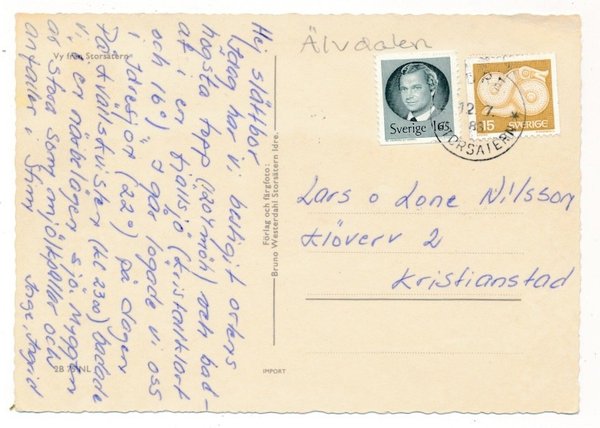 Vy från Storsätern
Hej slättbor
Idag har vi besligit ortens
högsta topp (1204möh) och bad-
at i en fjällsjö (kristallklart
och 16°). Igår logade vi oss
i Idresjön (22°) på dagen
På kvällskvisten (kl 2300) badade
vi i en närbelägen sjö. Myggen
är stora som mjölkpallar och
anfaller i
Inge, Ingrid
2B 75 NL
Förlag och färgfoto:
Bruno Westerdahl Storsätern Idre.
IMPORT
Älvdalen
Sverige 1.65
15 SVERIGE
12.7.
STORSÄTERN *
Lars o Lone Nilsson
Klöverv 2
Kristianstad